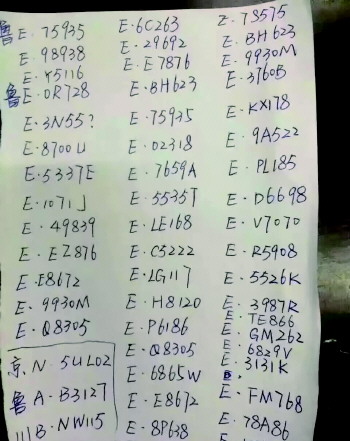 鲁E·75935
E·98938
E·K5116
鲁E·0R728
E·3N55?
E-8700U
E·5337E
E·1071J
E·49839
E·EZ876
E·E8672
E·9930M
E·Q8305
京·N·5UL02
鲁A·B3127
川B·NW115
E·6C263
E·29692
E·E7876
E·BH623
E·75935
E·02318
E·7659A
E·5535T
E·LE168
E·C5222
E·LG117
E·H8120
E·P6186
E·Q8305
E·6865W
E·E8672
E·8P638
E·78575
E·BH623
E·9930M
E·3760B
E·KX178
E·9A522
E·PL185
E·D6698
E·V7070
E·R5908
E·5526K
E·3987R
E·TE866
E·GM262
E·6829V
E·3131K
E·FM768
E·78A86